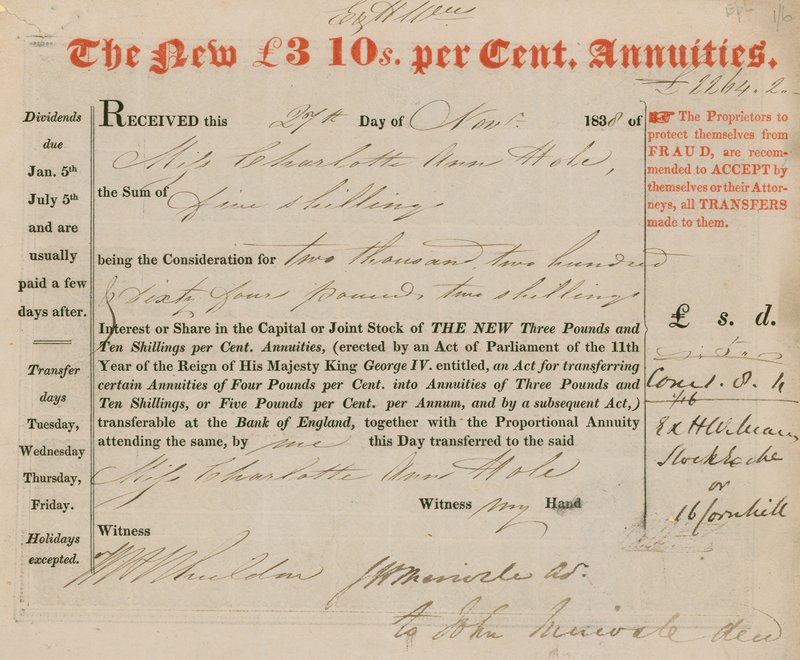 The New £3 10s. per Cent. Annuities.
£2264.2.-
Dividends
due
Jan. 5th
July 5th
and are
usually
paid a few
days after.
Transfer
days
Tuesday,
Wednesday
Thursday,
Friday.
Holidays
excepted.
RECEIVED this 27th Day of Novr. 1838 of
Miss Charlotte Ann Hole,
the Sum of five shillings
being the Consideration for two thousand two hundred
& sixty four pounds two shillings
Interest or Share in the Capital or Joint Stock of THE NEW Three Pounds and
Ten Shillings per Cent. Annuities, (erected by an Act of Parliament of the 11th
Year of the Reign of His Majesty King George IV. entitled, an Act for transferring
certain Annuities of Four Pounds per Cent. into Annuities of Three Pounds and
Ten Shillings, or Five Pounds per Cent. per Annum, and by a subsequent Act,)
transferable at the Bank of England, together with the Proportional Annuity
attending the same, by me this Day transferred to the said
Miss Charlotte Ann Hole
Witness my Hand
Witness
J H Merivale Ad.
to John Merivale decd
☛ The Proprietors to
protect themselves from
FRAUD, are recom-
mended to ACCEPT by
themselves or their Attor-
neys, all TRANSFERS
made to them.
£ s. d.
1/16
Stock Exche
or
16 Cornhill